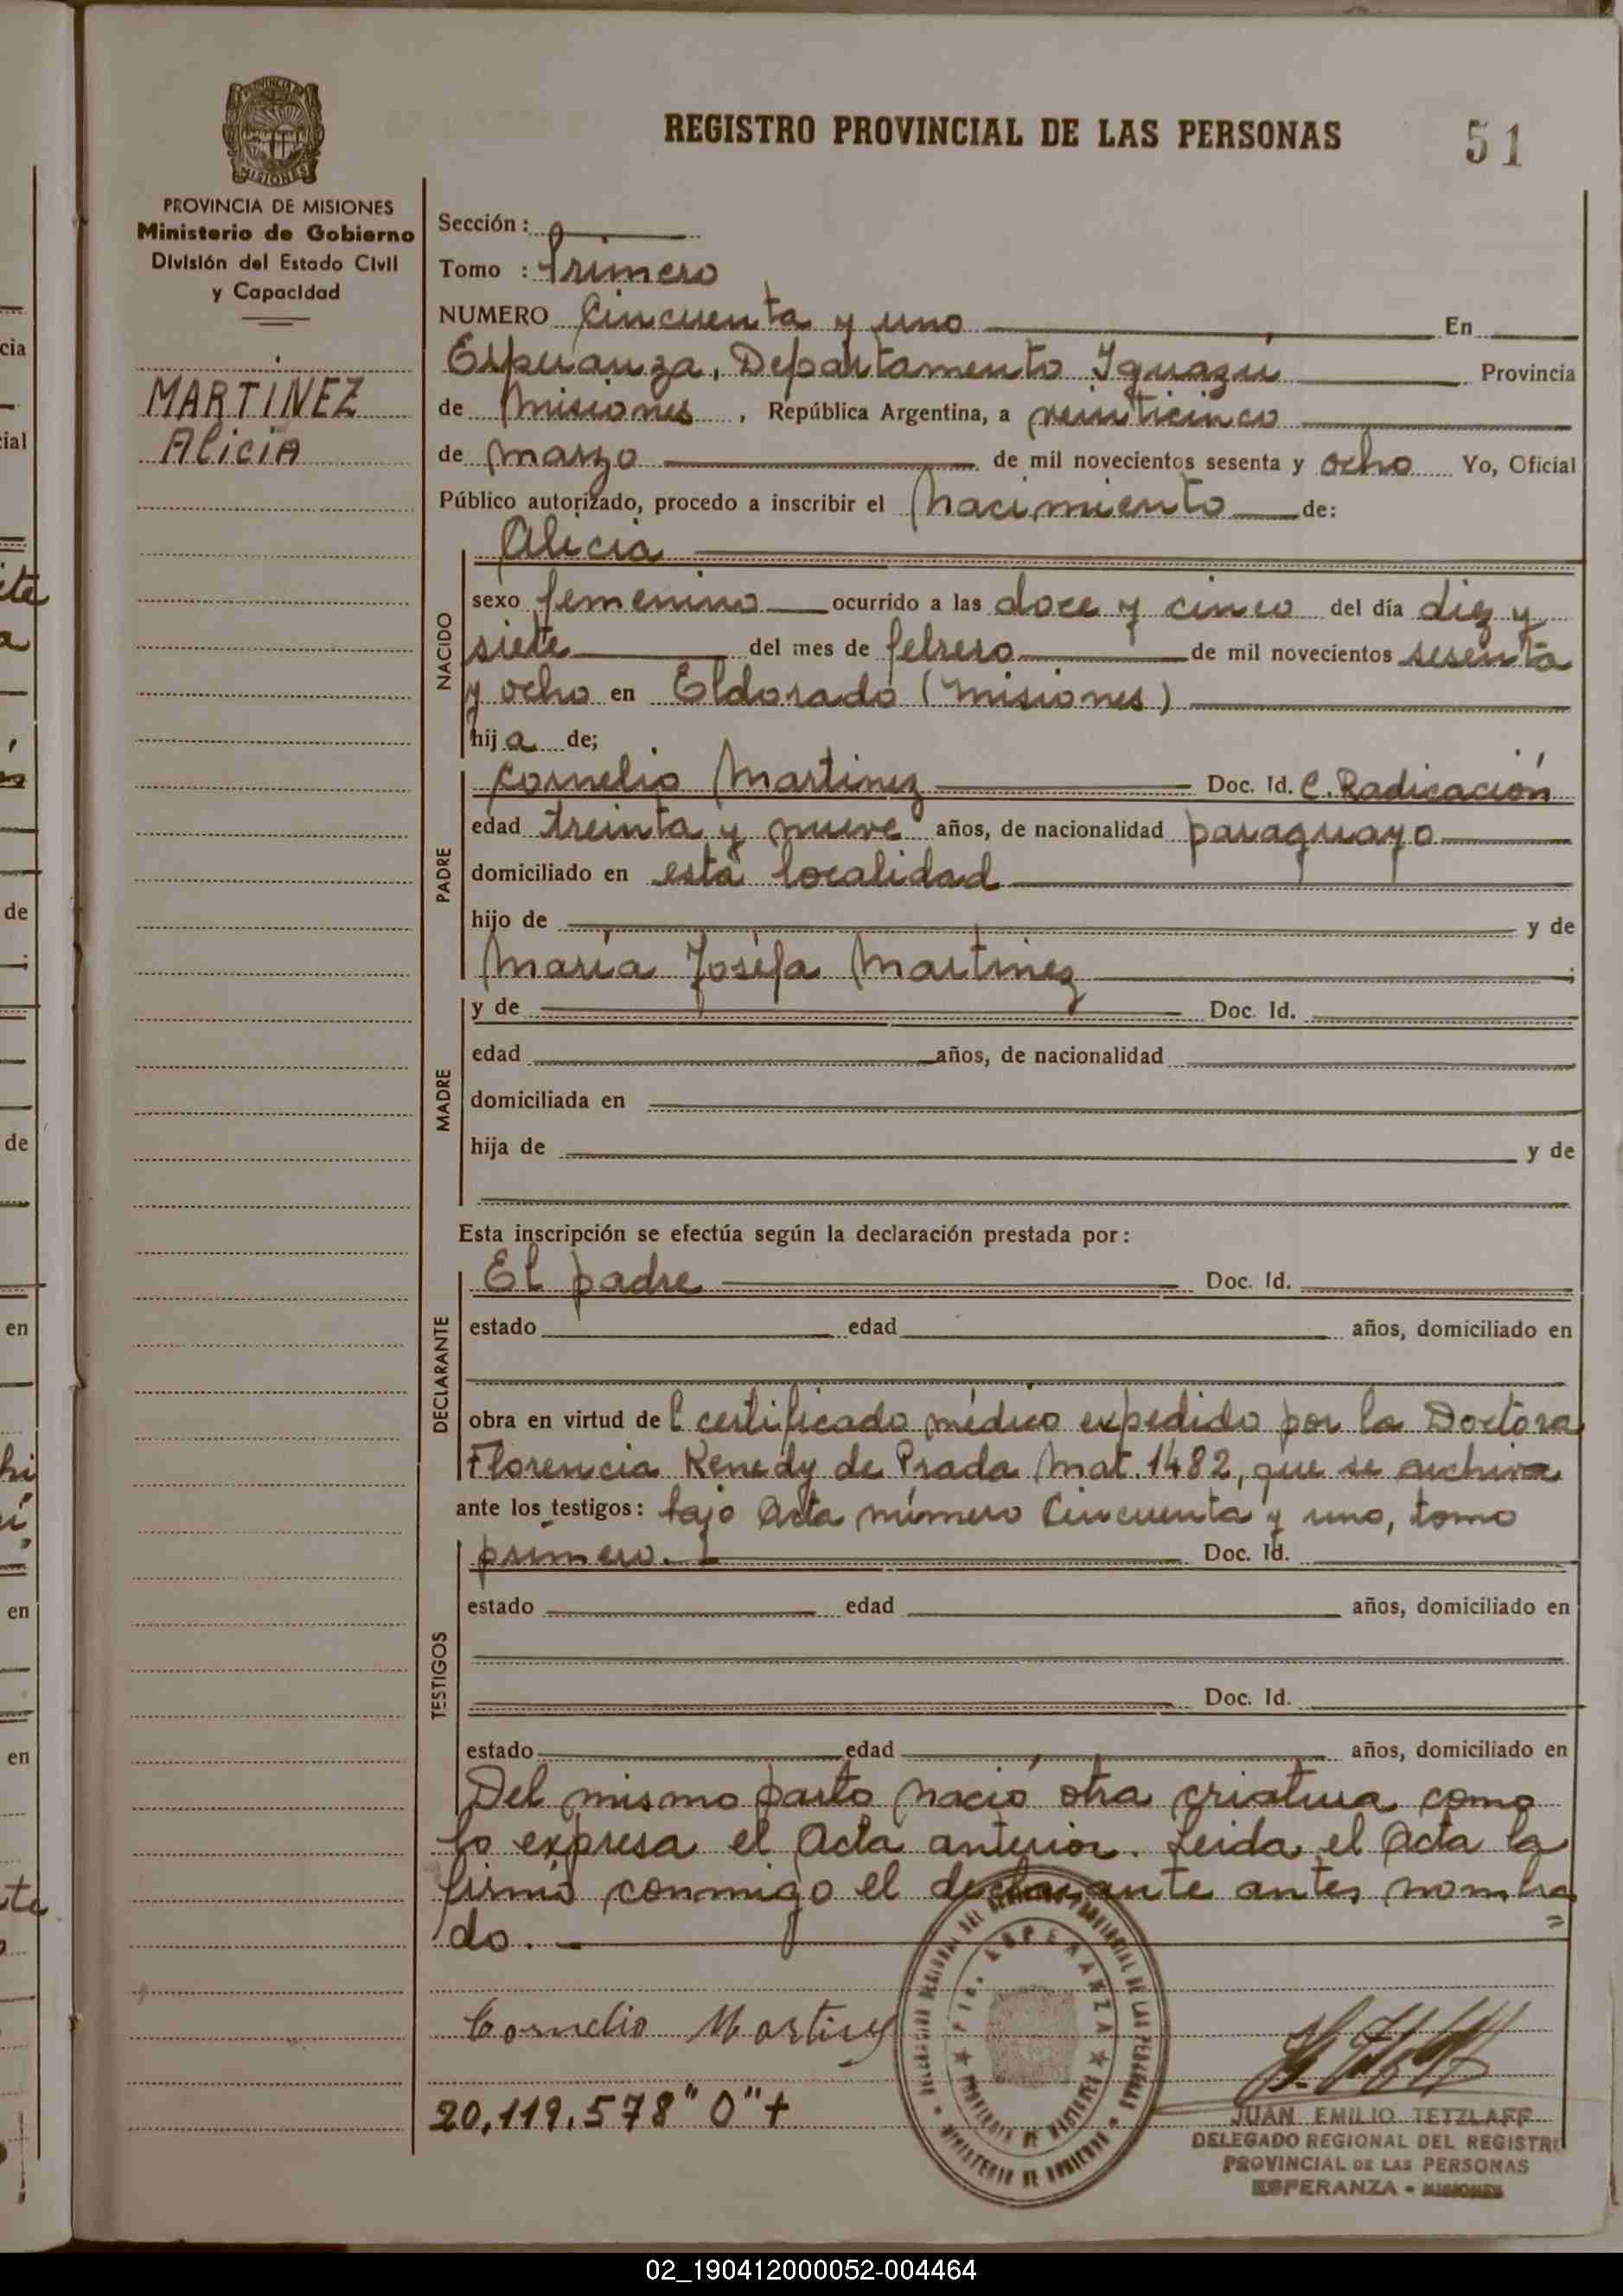 REGISTRO PROVINCIAL DE LAS PERSONAS
51
MISIONES
PROVINCIA DE MISIONES
Ministerio de Gobierno
División del Estado Civil
y Capacidad
MARTINEZ
Alicia
Sección :
Tomo : Primero
NUMERO Cincuenta y uno En
Esperanza, Departamento Iguazú Provincia
de Misiones , República Argentina, a veinticinco
de marzo de mil novecientos sesenta y ocho Yo, Oficial
Público autorizado, procedo a inscribir el Nacimiento de:
Alicia
NACIDO
sexo femenino ocurrido a las doce y cinco del día diez y
siete del mes de febrero de mil novecientos sesenta
y ocho en Eldorado (Misiones)
hij a de;
PADRE
Cornelio Martinez Doc. Id. C. Radicación
edad treinta y nueve años, de nacionalidad paraguayo
domiciliado en esta localidad
hijo de y de
María Joséfa Martinez ;
MADRE
y de Doc. Id.
edad años, de nacionalidad
domiciliada en
hija de y de
Esta inscripción se efectúa según la declaración prestada por :
DECLARANTE
El padre Doc. Id.
estado edad años, domiciliado en
obra en virtud de l certificado médico expedido por la Doctora
Florencia Kenedy de Prada Mat. 1482, que se archiva
ante los testigos : bajo Acta número Cincuenta y uno, tomo
TESTIGOS
primero. Doc. Id.
estado edad años, domiciliado en
Doc. Id.
estado edad años, domiciliado en
Del mismo parto nació otra criatura como
lo expresa el Acta anterior. Leida el Acta la
firmó conmigo el declarante antes nombra
do. -
Cornelio Martinez
20,119,578 "O" +
JUAN EMILIO TETZLAFF
DELEGADO REGIONAL DEL REGISTRO
PROVINCIAL DE LAS PERSONAS
ESPERANZA - MISIONES
cia
cial
de
de
en
en
en
02_190412000052-004464